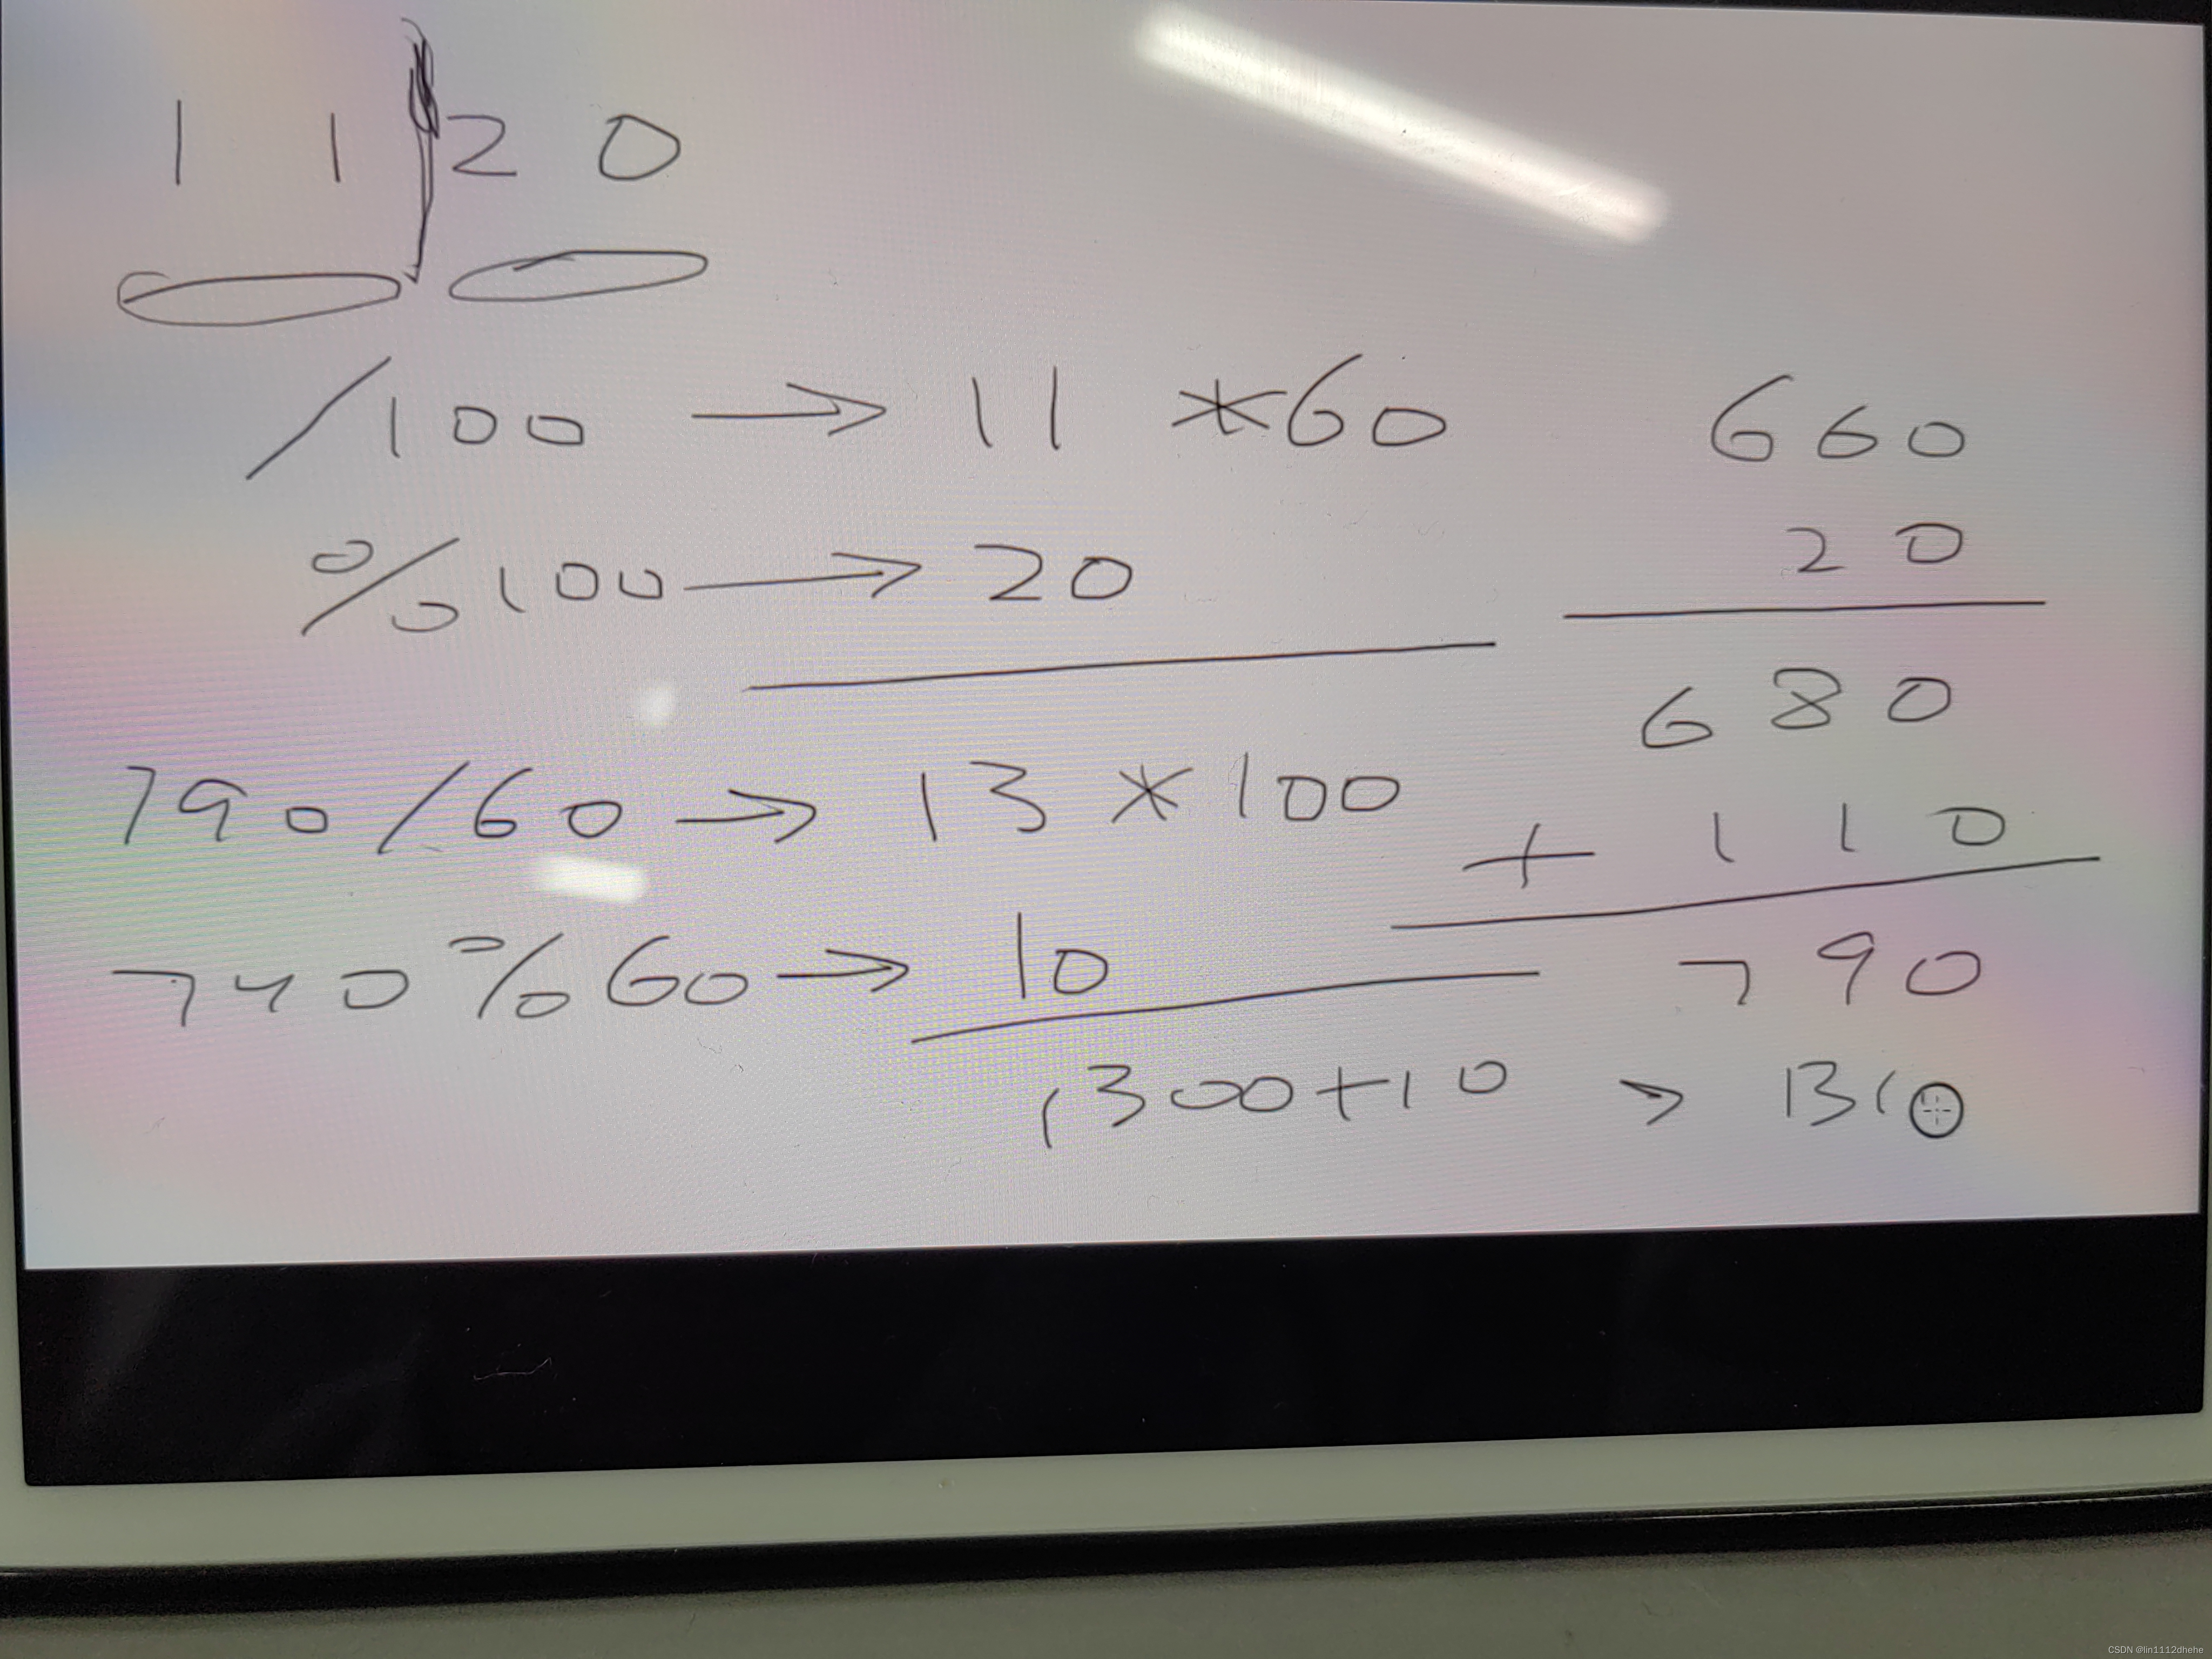 1 1 2 0
/100 → 11 *60 660
%100 → 20 20
680
790/60 → 13 * 100 + 110
740%60 → 10 790
1300+10 > 1310
CSDN @lin1112dhehe